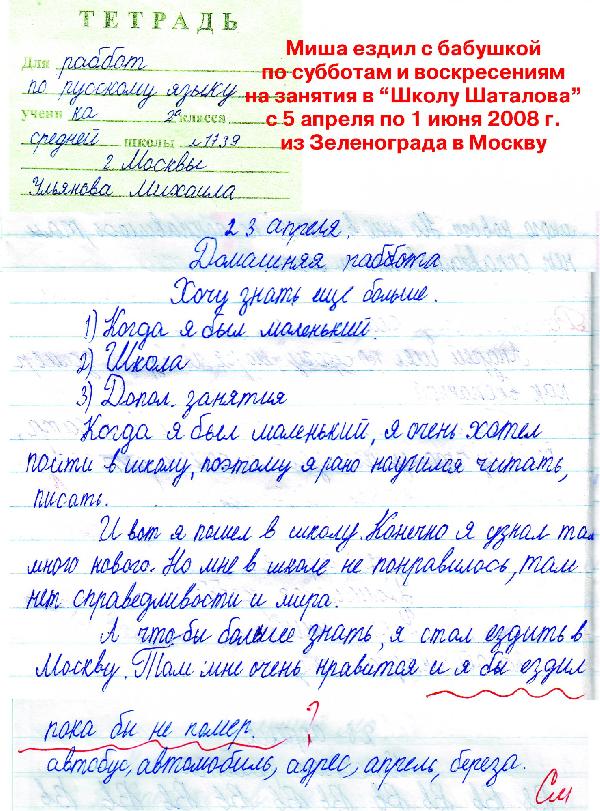 ТЕТРАДЬ
Для рабbот
по русскому языку
учени ка 2а класса
средней школы №1739
г. Москвы
Ульянова Михаила
Миша ездил с бабушкой
по субботам и воскресениям
на занятия в “Школу Шаталова”
с 5 апреля по 1 июня 2008 г.
из Зеленограда в Москву
23 апреля.
Домашняя рабbота
Хочу знать еще больше.
1) Когда я был маленький.
2) Школа
3) Допол. занятия
Когда я был маленький, я очень хотел
пойти в школу, поэтому я рано научился читать,
писать.
И вот я пошел в школу. Конечно я узнал там
много нового. Но мне в школе не понравилось, там
нет справедливости и мира.
А что бы больше знать, я стал ездить в
Москву. Там мне очень нравится и я бы ездил
пока бы не помер. ?
автобус, автомобиль, адрес, апрель, береза.
См